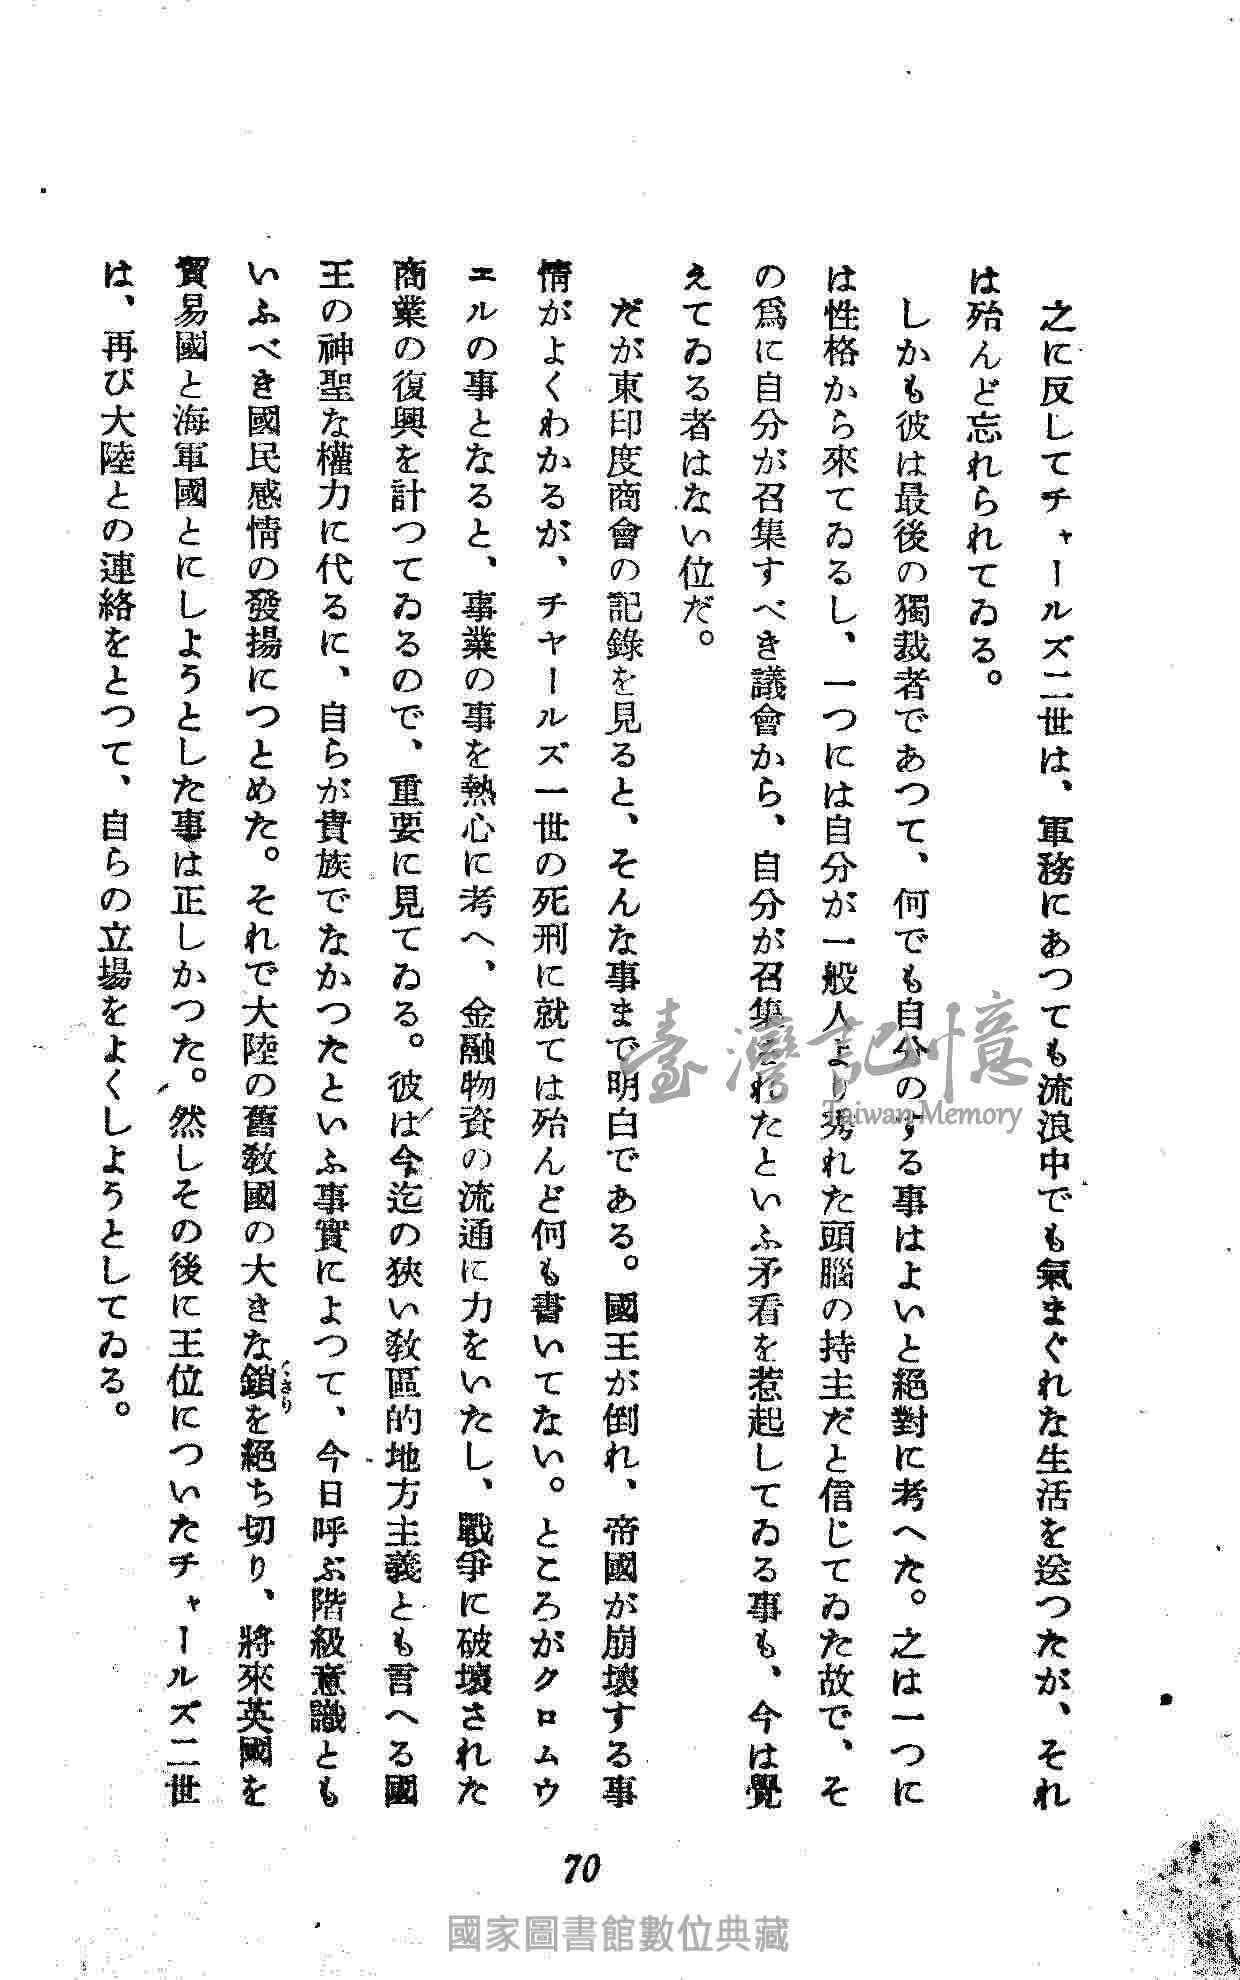 之に反してチャールズ二世は、軍務にあつても流浪中でも氣まぐれな生活を送つたが、それ
は殆んど忘れられてゐる。
しかも彼は最後の獨裁者であつて、何でも自分のする事はよいと絕對に考へた。之は一つに
は性格から來てゐるし、一つには自分が一般人より秀れた頭腦の持主だと信じてゐた故で、そ
の爲に自分が召集すべき議會から、自分が召集されたといふ矛看を惹起してゐる事も、今は覺
えてゐる者はない位だ。
だが東印度商會の記錄を見ると、そんな事まで明白である。國王が倒れ、帝國が崩壞する事
情がよくわかるが、チヤールズ一世の死刑に就ては殆んど何も書いてない。ところがクロムウ
エルの事となると、事業の事を熱心に考へ、金融物資の流通に力をいたし、戰爭に破壞された
商業の復興を計つてゐるので、重要に見てゐる。彼は今迄の狹い敎區的地方主義とも言へる國
王の神聖な權力に代るに、自らが貴族でなかつたといふ事實によつて、今日呼ぶ階級意識とも
いふべき國民感情の發揚につとめた。それで大陸の舊敎國の大きな鎖くさりを絕ち切り、將來英國を
貿易國と海軍國とにしようとした事は正しかつた。然しその後に王位についたチャールズ二世
は、再び大陸との連絡をとつて、自らの立場をよくしようとしてゐる。
70
臺灣記憶
Taiwan Memory
國家圖書館數位典藏